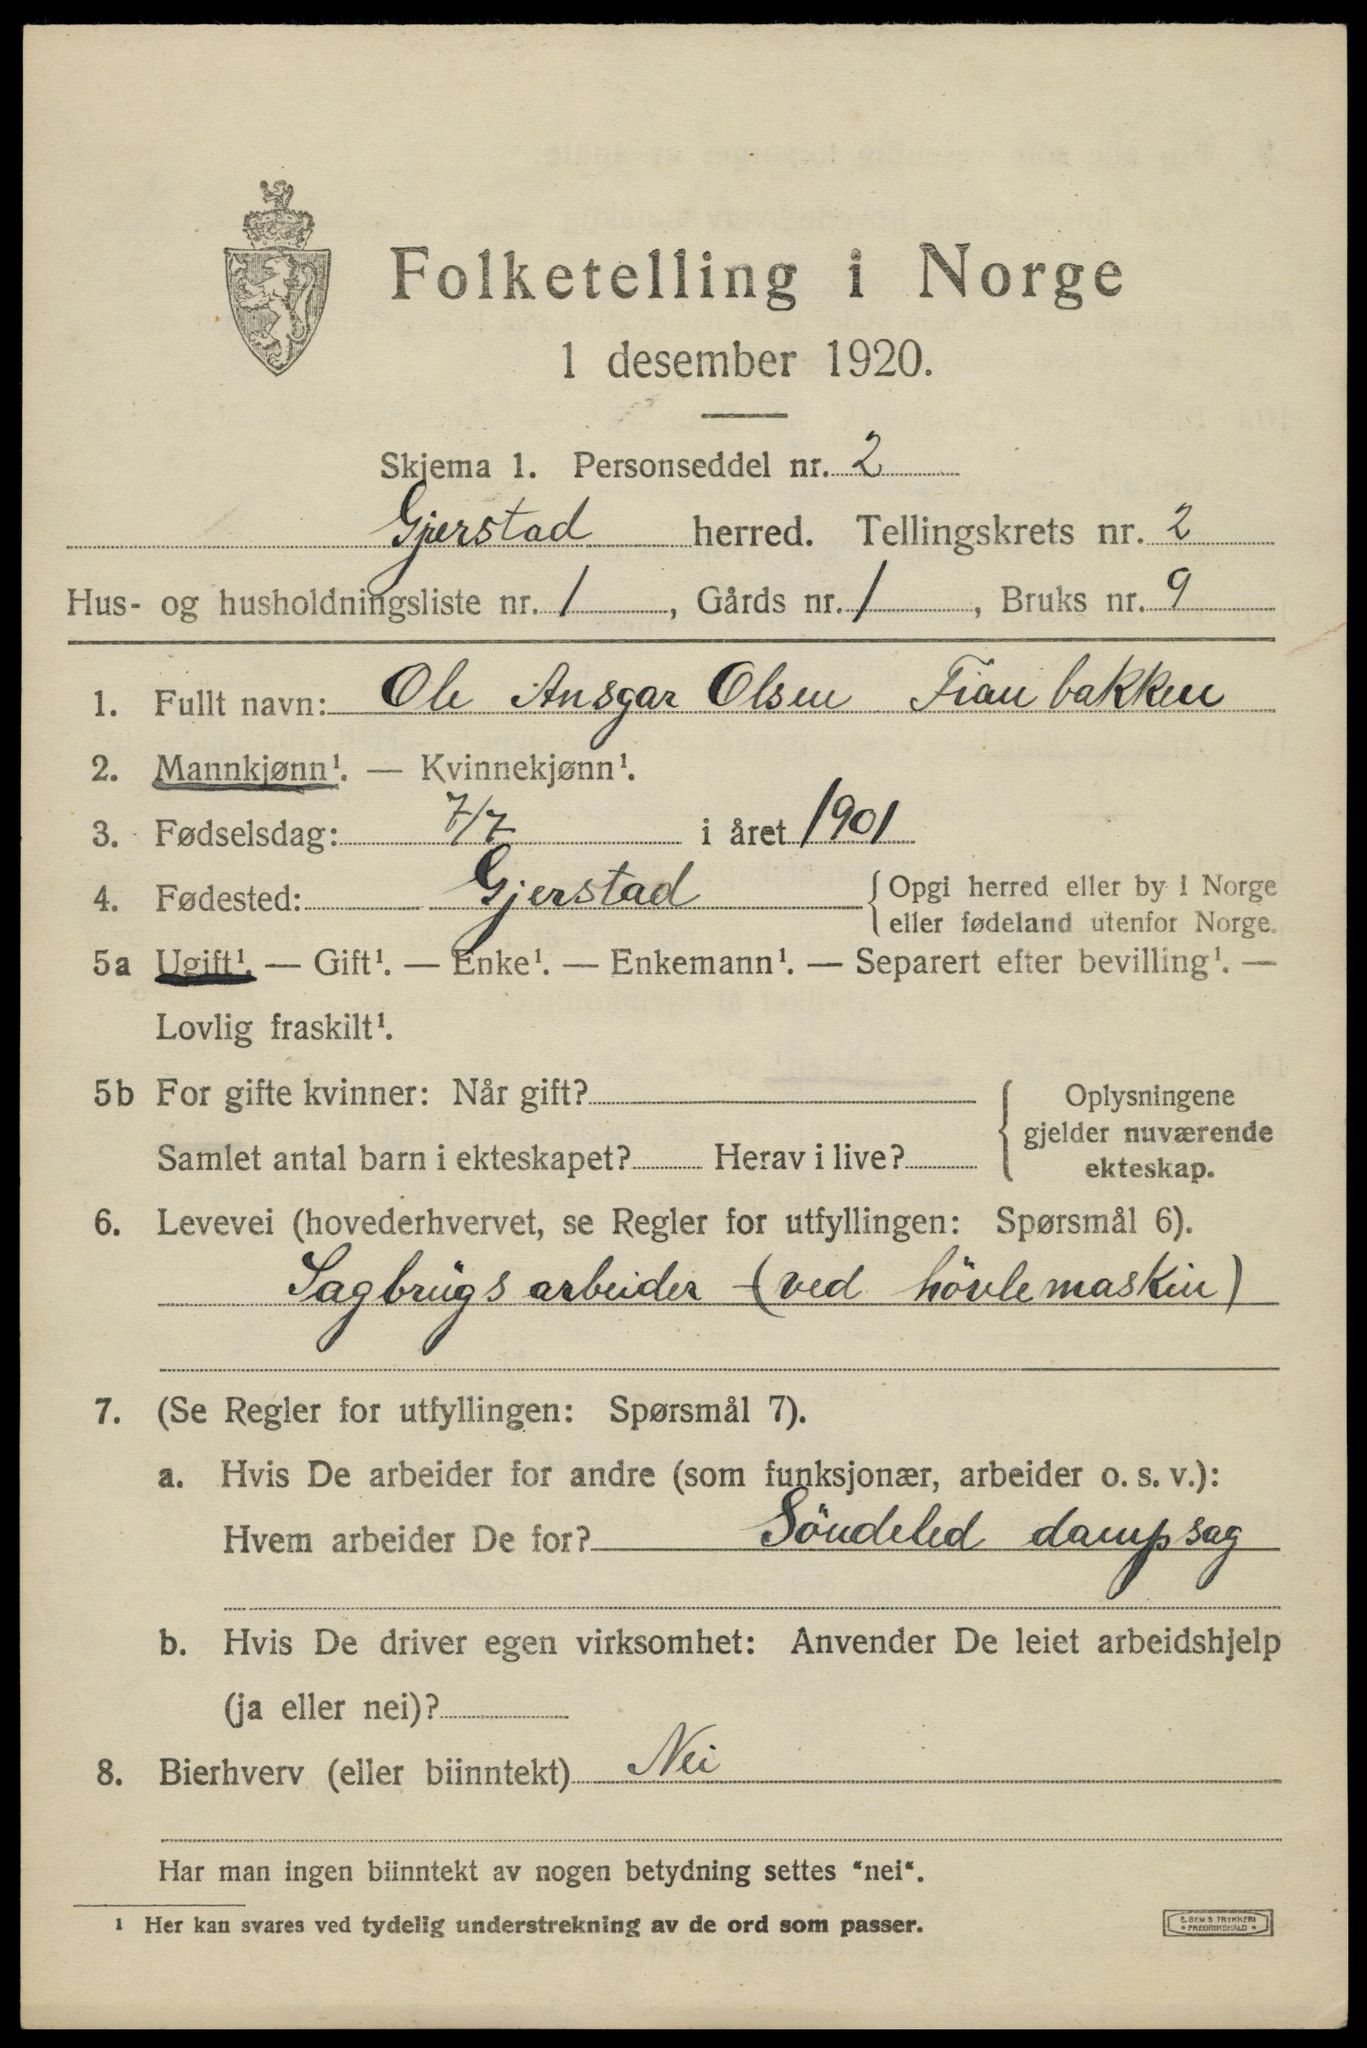 Folketelling i Norge
1 desember 1920.
Skjema 1. Personseddel nr. 2
Gjerstad herred. Tellingskrets nr. 2
Hus- og husholdningsliste nr. 1, Gårds nr. 1, Bruks nr. 9
1. Fullt navn: Ole Ansgar Olsen Fianbakken
2. Mannkjønn¹. — Kvinnekjønn¹.
3. Fødselsdag: 7/7 i året 1901
4. Fødested: Gjerstad {Opgi herred eller by i Norge
eller fødeland utenfor Norge.
5a Ugift¹. — Gift¹. — Enke¹. — Enkemann¹. — Separert efter bevilling¹. —
Lovlig fraskilt¹.
5b For gifte kvinner: Når gift? Oplysningene
gjelder nuværende
Samlet antal barn i ekteskapet? Herav i live? ekteskap.
6. Levevei (hovederhvervet, se Regler for utfyllingen: Spørsmål 6).
Sagbrügsarbeider - (ved hövlemaskin)
7. (Se Regler for utfyllingen: Spørsmål 7).
a. Hvis De arbeider for andre (som funksjonær, arbeider o. s. v.):
Hvem arbeider De for? Söndeled dampsag
b. Hvis De driver egen virksomhet: Anvender De leiet arbeidshjelp
(ja eller nei)?
8. Bierhverv (eller biinntekt) Nei
Har man ingen biinntekt av nogen betydning settes "nei".
¹ Her kan svares ved tydelig understrekning av de ord som passer.
E. SEM'S TRYKKERI
FREDRIKSHALD